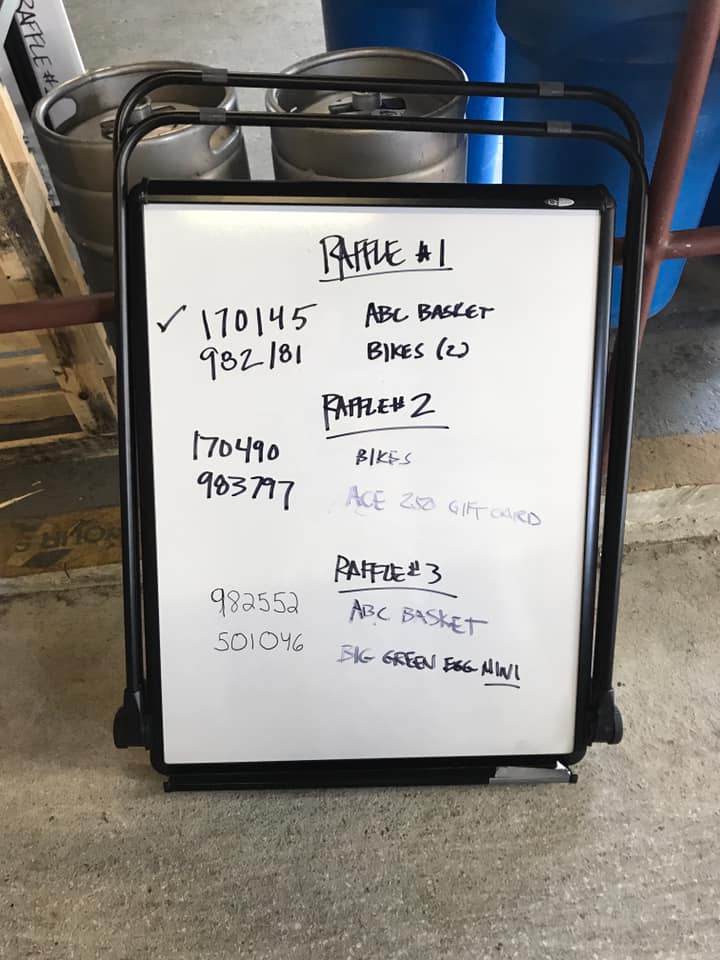 RAFFLE #
RAFFLE #1
✓ 170145 ABC BASKET
982181 BIKES (2)
RAFFLE# 2
170490 BIKES
983797 ACE 250 GIFT CARD
RAFFLE# 3
982552 ABC BASKET
501046 BIG GREEN EGG MINI